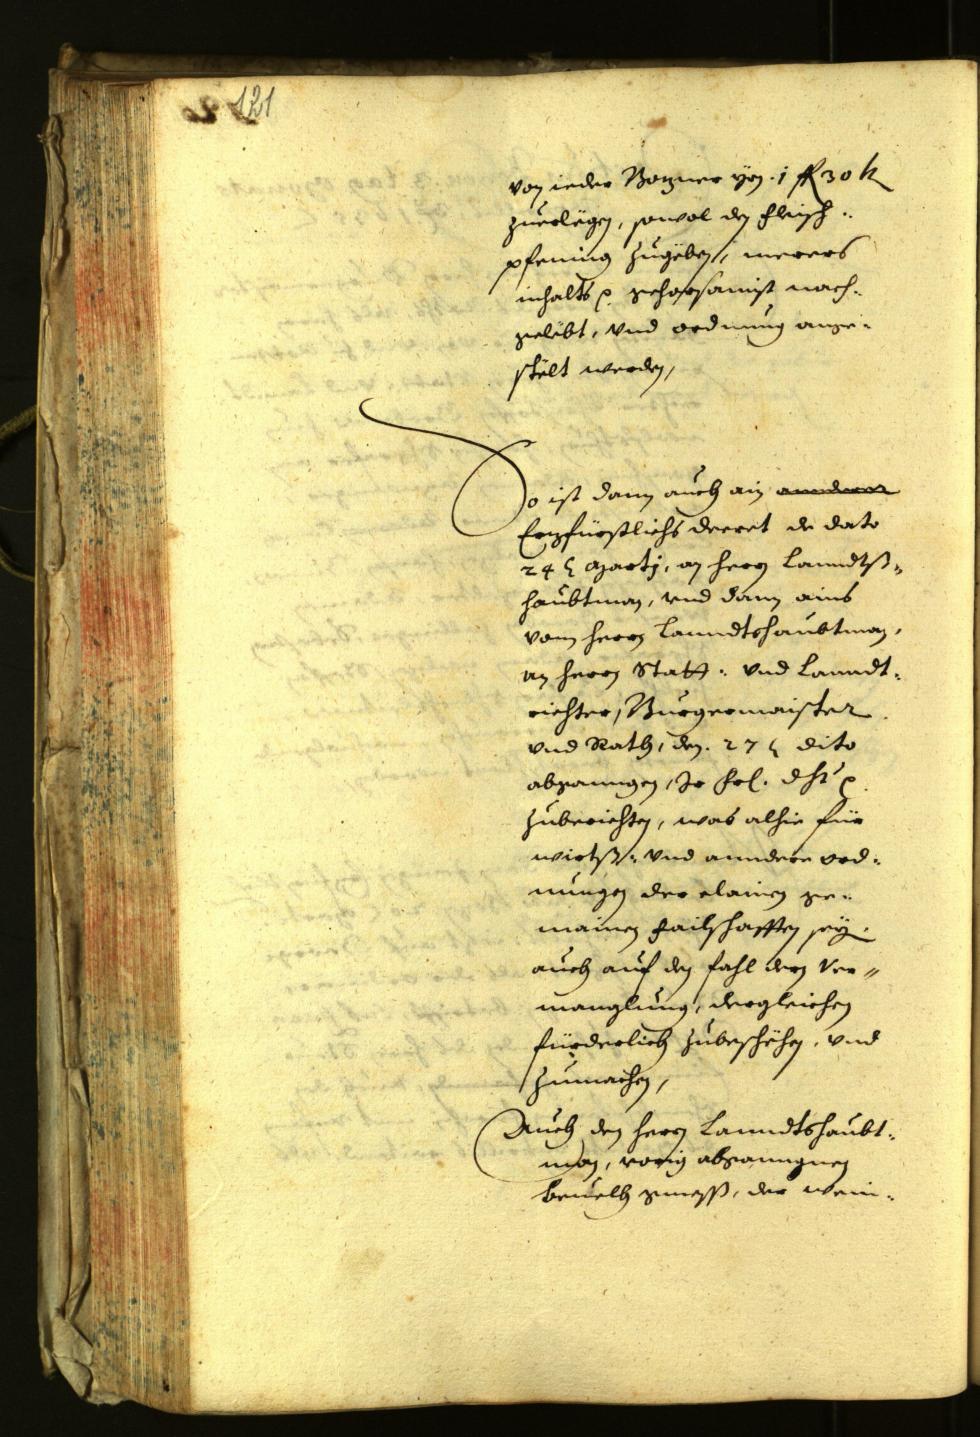 121
von ieder Bozner yrn. 1 fl 30 k
zuerlegen, sowol den Fleisch-
pfening zugeben, merers
inhalts p. gehorsamist nach-
gelebt, vnd ordnung ange-
stelt werden,
So ist dann auch ain annderer
Erzfürstlichs decret de dato
24 Martj, an herrn Lanndtß-
haubtman, vnd dann ains
vom herrn Lanndtshaubtman,
an herrn Statt- vnd Lanndt-
richter, Burgermaister
vnd Rath, den. 27 dito
abganngen, Ir frl. dht p.
zuberichten, was alhie für
wirtß- vnd anndere ord-
nungen der clainen ge-
mainen failschafften sey,
auch auf den fahl dern ver-
manglung, dergleichen
fürderlich zubeschehen, vnd
zumachen,
Auch den herrn Lanndtshaubt-
man, vorig abganngnen
beuelch gmeß, der wein-